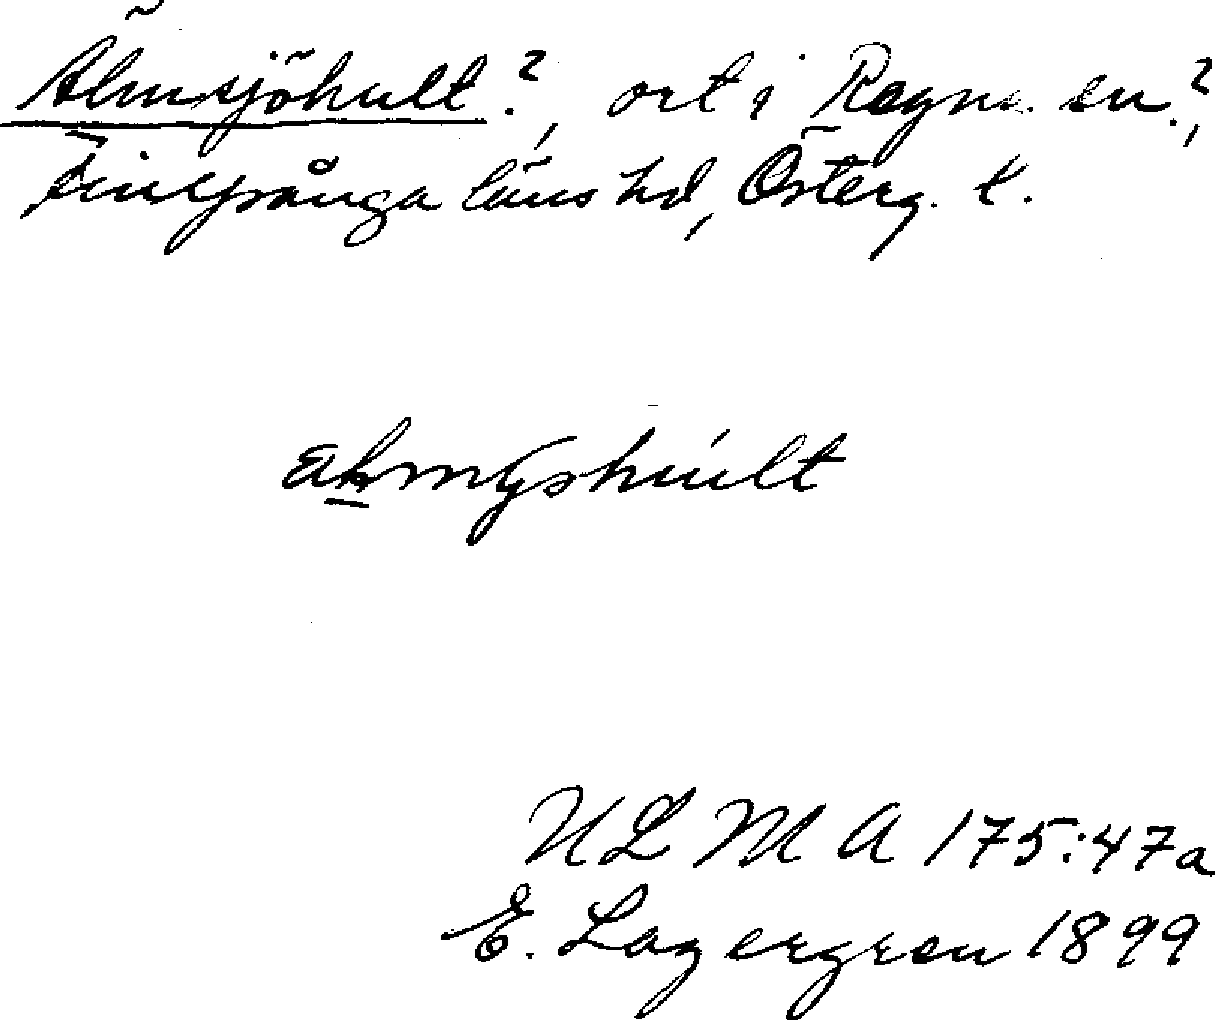 Älmsjöhult?, ort i Regna sn?,
Finspånga läns hd, Österg. l.
ULMA 175:47a
E. Lagergren 1899